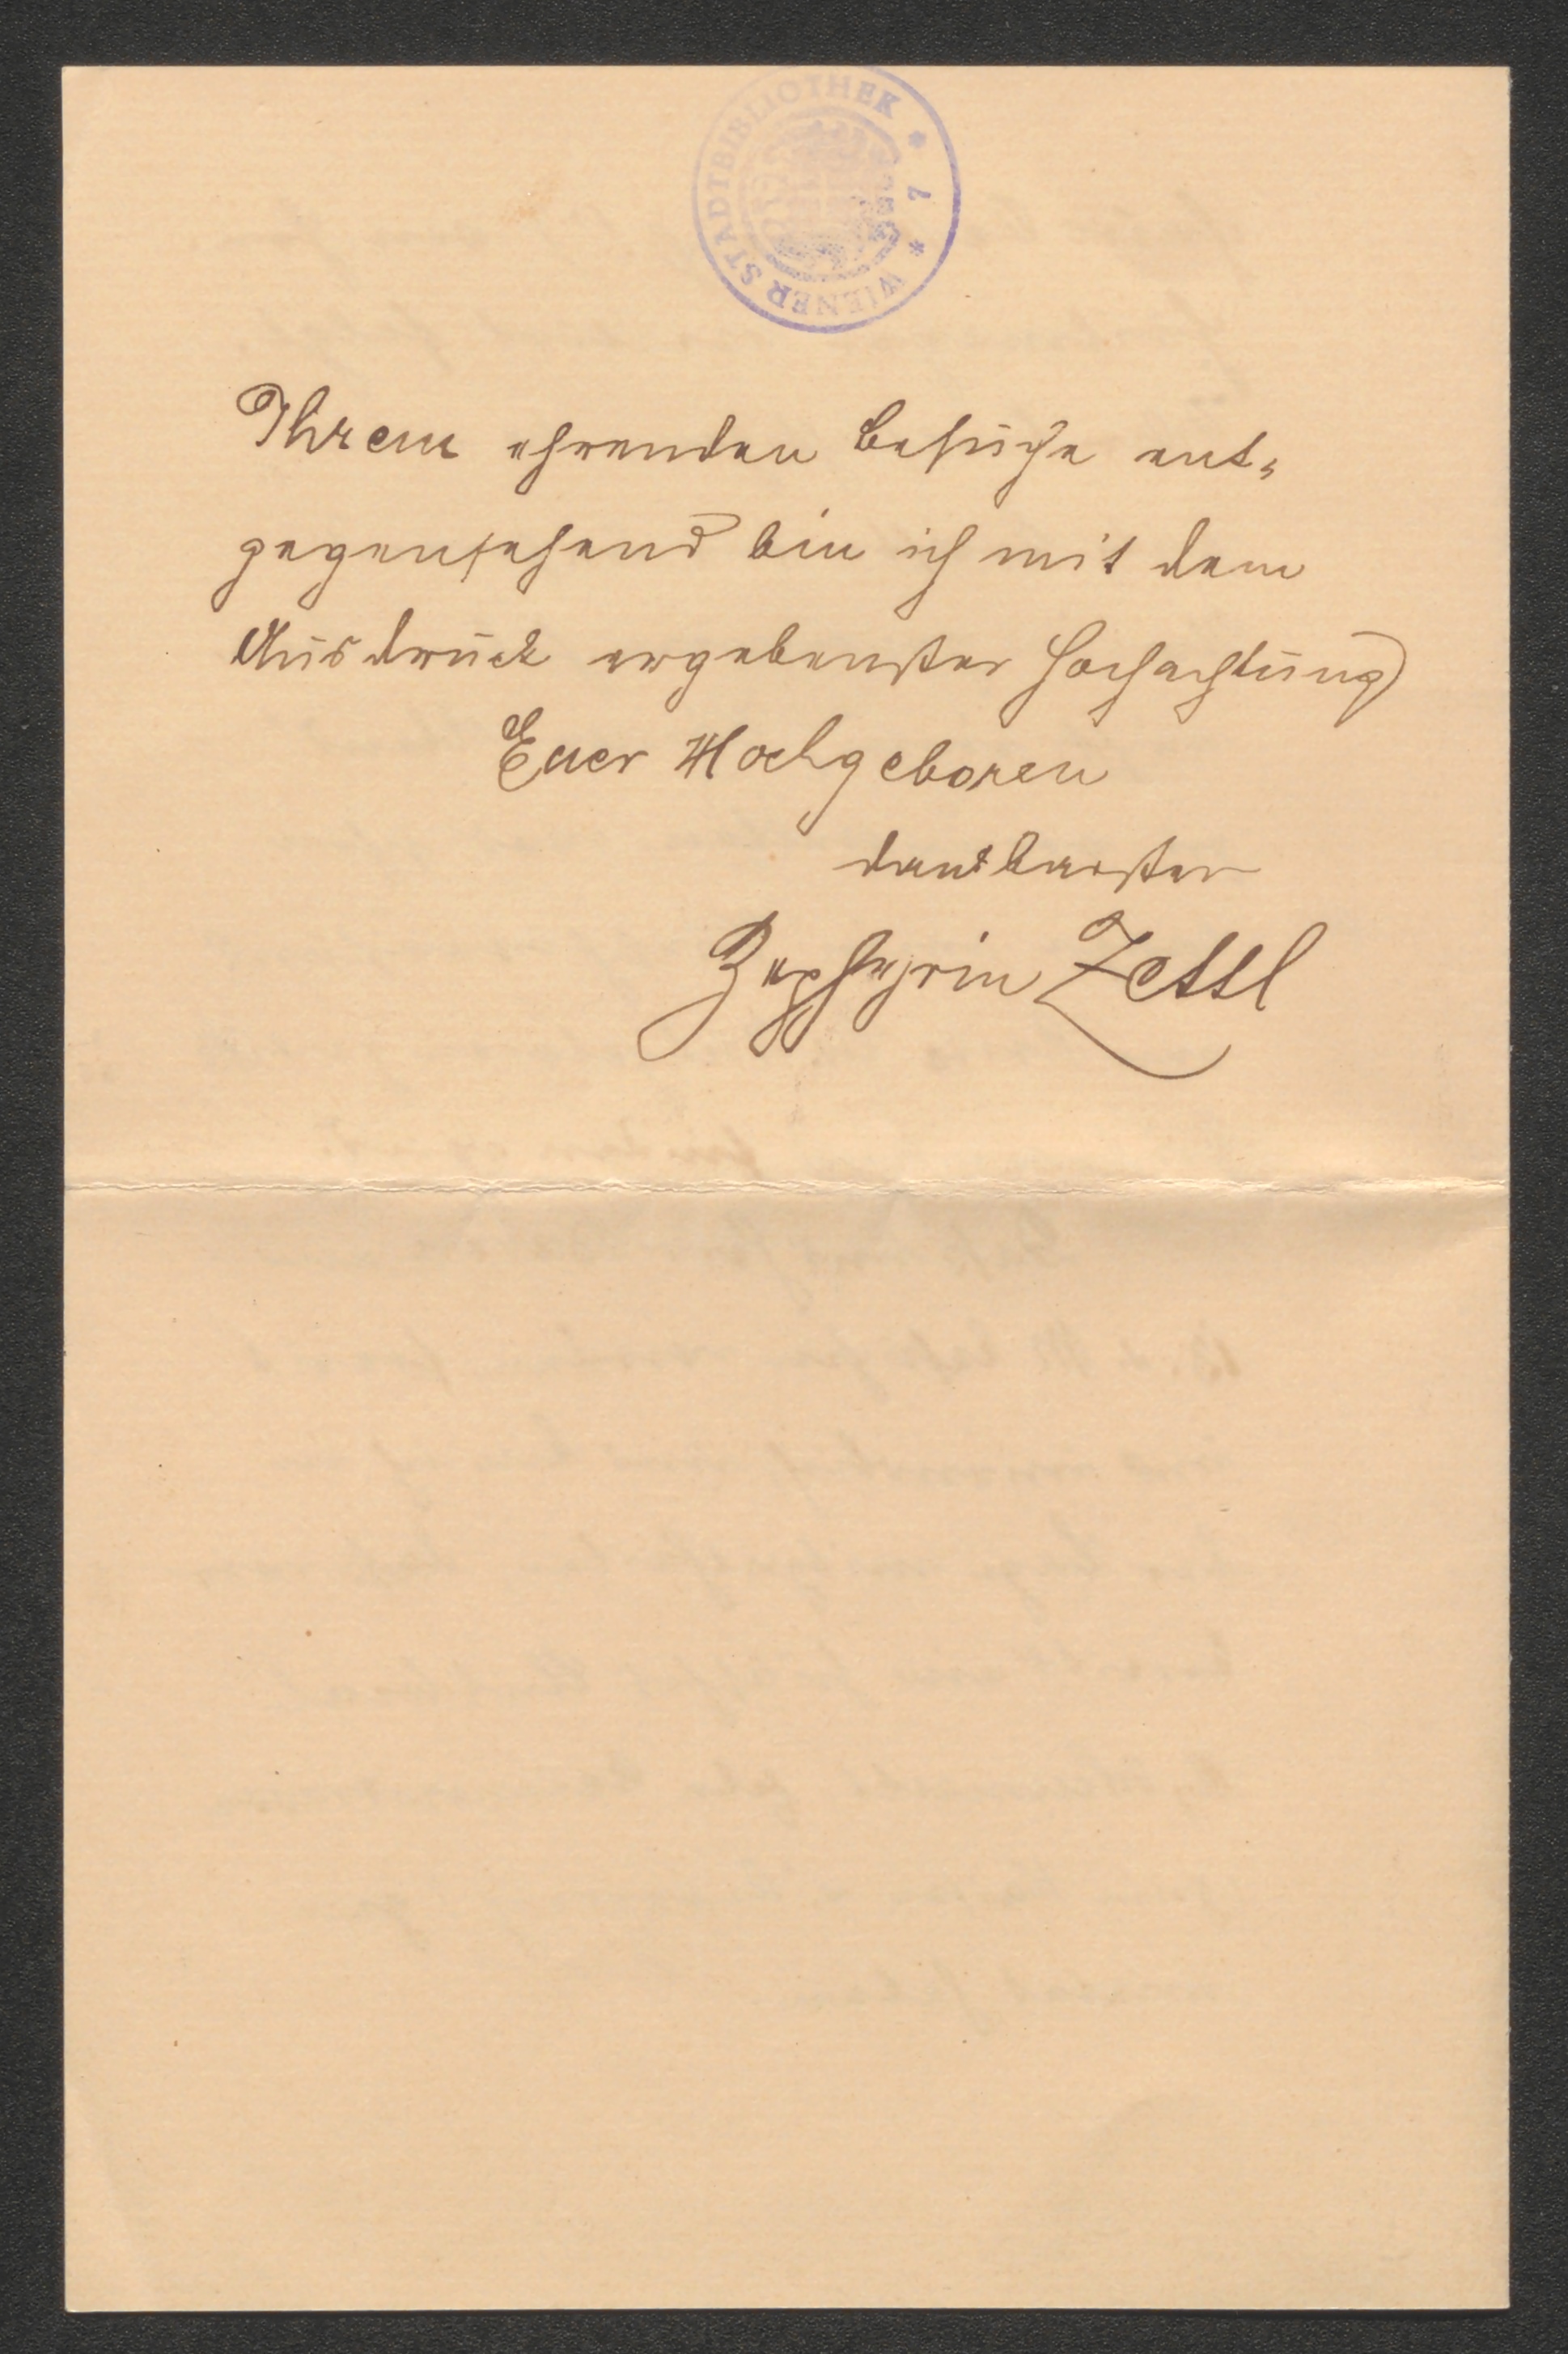 WIENER STADTBIBLIOTHEK * 7 *
Ihrem ehrenden Besuche ent-
gegensehend bin ich mit dem
Ausdruck ergebenster Hochachtung
Euer Hochgeboren
dankbarster
Zephyrin Zettl